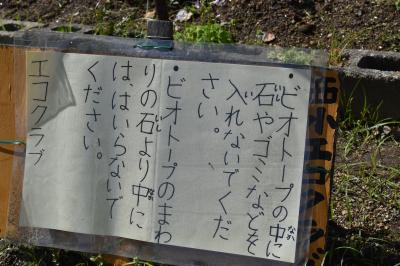 ・ビオトープの中に
石やゴミなどを
入れないでくだ
さい。
・ビオトープのまわ
りの石より中に
は、はいらないで
ください。
エコクラブ